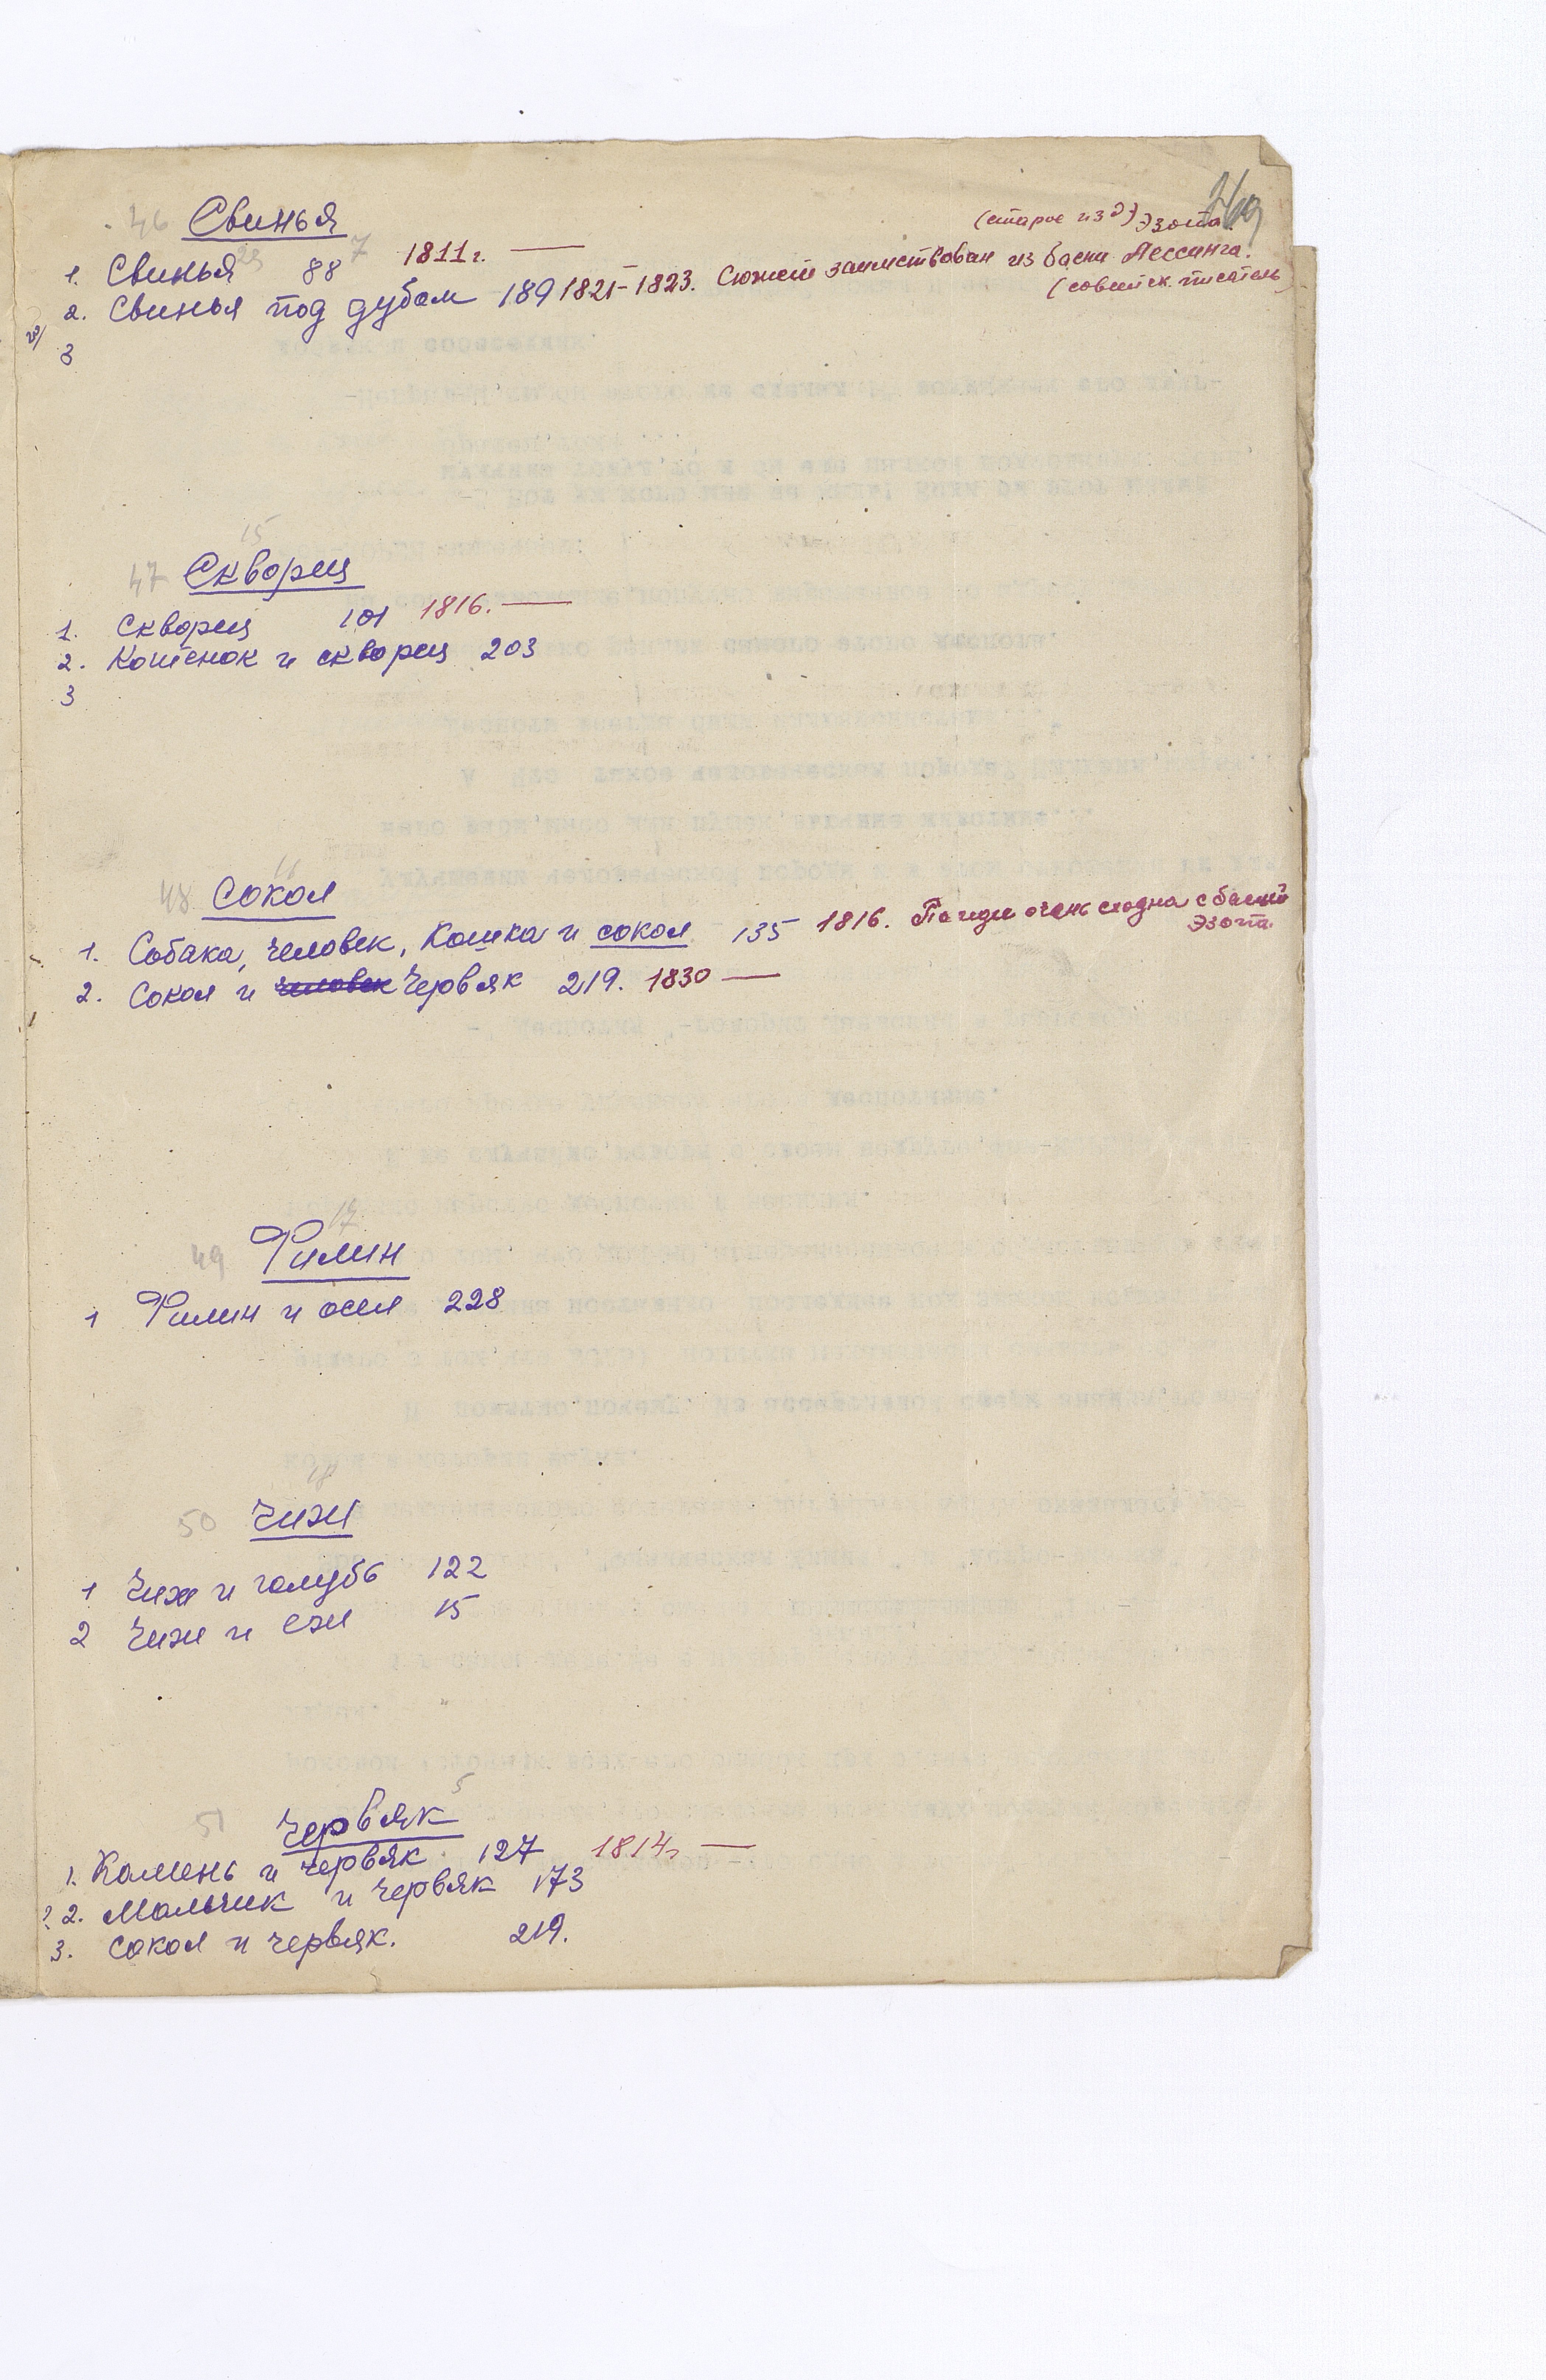 46 Свинья
(старое изд) Эзопа.
1. Свинья 88 1811 г. —
2. Свинья под дубом 189 1821-1823. Сюжет заимствован из басни Лессинга.
(советск. писатель)
3
15
47 Скворец
1. Скворец 101 1816. —
2. Котёнок и скворец 203
3
16
48 Сокол
1. Собака, человек, Кошка и сокол 135 1816. По идее очень сходна с басней
Эзопа.
2. Сокол и человек Червяк 219. 1830 —
17
49 Филин
1 Филин и осел 228
18
50 Чиж
1 Чиж и голубь 122
2 Чиж и еж 15
5
51 Червяк
1. Камень и червяк 127 1814 г —
? 2. Мальчик и червяк 173
3. Сокол и червяк. 219.